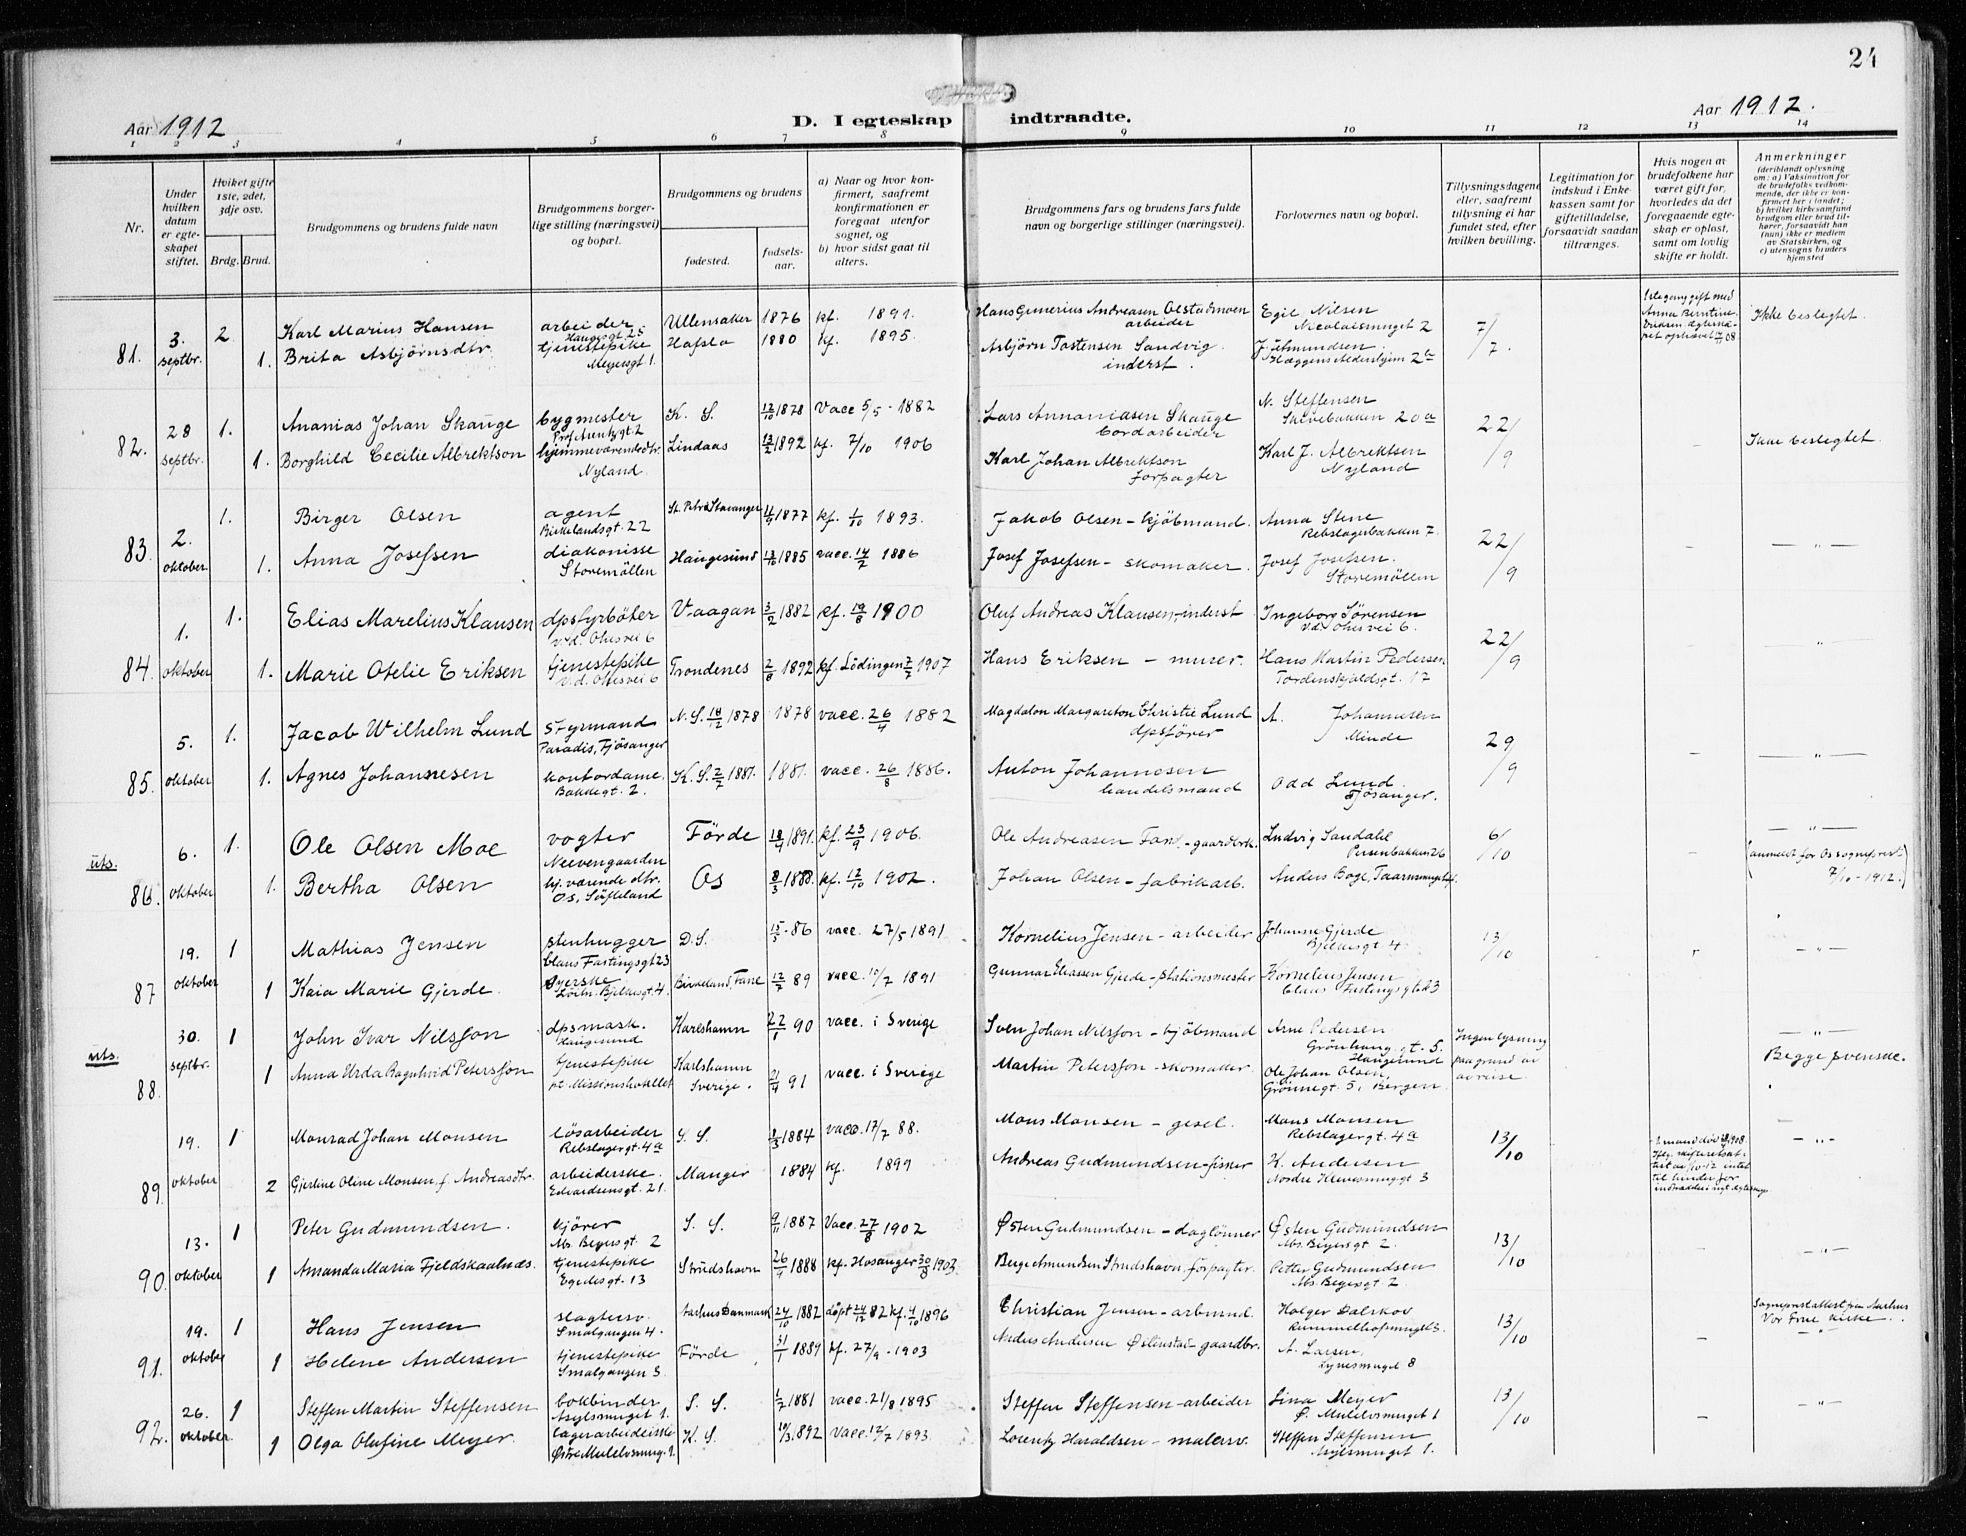 24
Aar 1912
D. I egteskap indtraadte.
Aar 1912.
1 2 3 4 5 6 7 8 9 10 11 12 13 14
Nr.
Under hvilken datum er egteskapet stiftet.
Hviket gifte 1ste, 2det, 3dje osv.
Brdg. Brud.
Brudgommens og brudens fulde navn
Brudgommens borgerlige stilling (næringsvei) og bopæl.
Brudgommens og brudens
fødested.
fødselsaar.
a) Naar og hvor konfirmert, saafremt konfirmationen er foregaat utenfor sognet, og
b) hvor sidst gaat til alters.
Brudgommens fars og brudens fars fulde navn og borgerlige stillinger (næringsvei).
Forlovernes navn og bopæl.
Tillysningsdagene eller, saafremt tillysning ei har fundet sted, efter hvilken bevilling.
Legitimation for indskud i Enkekassen samt for giftetilladelse, forsaavidt saadan tiltrænges.
Hvis nogen av brudefolkene har været gift før, hvorledes da det foregaaende egteskap er opløst, samt om lovlig skifte er holdt.
Anmerkninger (deriblandt oplysning om: a) Vaksination for de brudefolks vedkommende, der ikke er konfirmert her i landet; b) hvilket kirkesamfund brudgom eller brud tilhører, forsaavidt han (hun) ikke er medlem av Statskirken, og c) utensogns bruders hjemsted
81. 3. septbr. 2 Karl Marius Hansen arbeider Haugesgt. 25 Ullensaker 1876 kf. 1891. Hans Gunerius Andreasen Olstadmoen arbeider Egil Nilsen Nicolaismuget 2 7/7. Ikke beslegtet.
1. Brita Asbjørnsdtr tjenestepike Meyersgt 1. Hafslo 1880 kf. 1895. Asbjørn Tostensen Sandvig inderst.
82. 28 septbr. 1. Ananias Johan Skauge bygmester K. S. 12/10 1878 Vacc 5/5 - 1882 Lars Annaniasen Skauge bordarbeider N. Steffensen Skivebakken 20a 22/9 Ikke beslegtet.
1. Borghild Cecilie Albrektson hjemmeværende dtr. Nyland. Lindaas 13/2 1892 kf. 7/10 1906 Karl Johan Albrektson forpagter Karl J. Albrektsen Nyland
83. 2. oktober 1. Birger Olsen agent Birkelandsgt. 22 St. Petri Stavanger 11/9 1877 kf. 1/10 1893. Jakob Olsen - kjøbmand. Anna Stene Rebslagerbakken 7. 22/9 - - " -
1. Anna Josefsen diakonisse Storemöllen Haugesund 13/10 1885 vacc. 14/7 1886 Josef Josefsen - skomaker. Josef Josefsen. Storemöllen
84. 1. oktober 1. Elias Marelius Klausen dpsfyrbøter V.d. Ohrsvei 6 Vaagan 3/2 1882 kf. 19/8 1900 Oluf Andreas Klausen, inderst Ingeborg Sørensen V.d. Ohrsvei 6. 22/9 "
1. Marie Otelie Eriksen tjenestepike V.d. Ohrsvei 6 Trondenes 2/8 1892 kf. Lödingen 7/7 1907 Hans Eriksen - murer. Hans Martin Pedersen Tordenskjoldsgt. 17
85. 5. oktober 1. Jacob Wilhelm Lund styrmand Paradis, Fjösanger N. S. 18/12 1878 1878 vacc. 26/4 1882 Magdalon Margareton Christie Lund dpsfører A. Johannesen Minde 29/9 - - " -
1. Agnes Johannesen kontordame. Bakkegt. 2. K. S. 2/7 1881. 1881. vacc. 26/8 1886. Anton Johannesen handelsmand Odd Lund Fjösanger.
uts. 86. 6. oktober 1. Ole Olsen Moe vogter Neevengaarden Förde 18/4 1891. kf. 23/9 1906. Ole Andreasen - gaardbrk. Ludvig Sandahl Persenbakken 26 6/10 - - " - (anmeldt for Os sogneprest 7/10 - 1912.)
1. Bertha Olsen hj. værende dtr. Os, Söfteland Os 8/3 1888. kf. 12/10 1902. Johan Olsen - fabrikarb.
87 19. oktober 1 Mathias Jensen stenhugger Claus Fastingsgt 23 D.S. 15/5 - 86 vacc. 27/5 1891. Kornelius Jensen - arbeider Johanne Gjerde Bjelkesgt 4. 13/10 - " -
1 Kaia Marie Gjerde. Syerske Bjelkesgt. 4. Birkeland, Fane 12/7 89 vacc. 10/7 1891 Gunnar Eliassen Gjerde - stationsmester Kornelius Jensen Claus Fastingsgt 23
uts. 88. 30. septbr. 1 John Ivar Nilsson dpsmask. Haugesund Karlshamn 22/1 90 vacc. i Sverige Sven Johan Nilsson - kjöbmand Arne Pedersen Haugesund Ingen lysning paa grund av avreise. - " - Begge svenske.
1 Anna Urda Ragnhild Petersson tjenestepike pt. Missionshotellet Karlshamn Sverige. 21/4 91 vacc. i Sverige Martin Petersson - skomaker. Ole Johan Olsen, Grönnegt. 5, Bergen.
89. 19. oktober 1 Monrad Johan Monsen løsarbeider Rebslagergt. 4a S. S. 1884 vacc. 17/7 88. Mons Monsen - gesel. Mons Monsen Rebslagergt. 4a 13/10 - " -
2 Gjertine Oline Monsen f. Andreasdtr. arbeiderske. Edvardsensgt. 21. Manger 1884 kf. 1899 Andreas Gudmundsen - fisker K. Andersen Nordre Klevesmuggt 3
90. 13. oktober 1 Peter Gudmundsen. kjører Ms. Beyersgt. 2 S. S. 9/11 1887 Vacc. 27/8 1902 Østen Gudmundsen - daglønner Østen Gudmundsen Ms. Beyersgt 2. 13/10 - - " -
1 Amanda Maria Fjeldskaalnæs. tjenestepike Egedesgt. 13 Strudshavn 26/4 1888 kf. Hosanger 30/8 1903. Berge Amundsen Strudshavn, forpagter. Petter Gudmundsen Ms. Beyersgt. 2
91. 19. oktober 1 Hans Jensen slagtersv. Smalgangen 4. Aarhus Danmark 24/10 1882 døpt 24/12 82 kf. 4/10 1896 Christian Jensen - arbmand. Holger Dalskov 13/10 - Sogneprestattest fra Aarhus Vor Frue kirke.
1 Helene Andersen tjenestepike Smalgangen 3 Förde 31/1 1889 kf. 27/9 - 1903 Anders Andersen - gaardbr. A. Larsen, Lynesmuget 8
92. 26. oktober. 1 Steffen Martin Steffensen bokbinder Asylsmuget 1. S. S. 1/7 1881 vacc. 21/8 1895 Steffen Steffensen - arbeider Lina Meyer Ø. Mulelvsmuget 1 13/10 - - " -
1 Olga Olufine Meyer. lagerarbeiderske Østre Mulelvsmug. 1. K. S. 10/3 1892 vacc. 12/7 1893. Lorentz Haraldsen - malersv. Steffen Steffensen Asylsmuget 1.